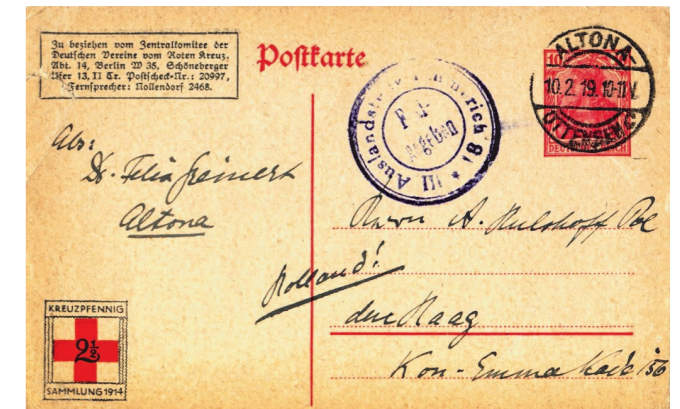 Zu beziehen vom Zentralkomitee der
Deutschen Vereine vom Roten Kreuz,
Abt. 14, Berlin W 35, Schöneberger
Ufer 13, II Tr. Postscheck-Nr.: 20997,
Fernsprecher: Nollendorf 2468.
Postkarte
ALTONA-
10.2.19.10-11V.
(OTTENSEN)
10
DEUTSCHES REICH
III Auslandstelle
geben
Abs:
Dr. Felix
Altona
Herrn A. Hulshoff Pol
Holland!
den Haag
Kon- Emma Kade 156
KREUZPFENNIG
2½
SAMMLUNG 1914